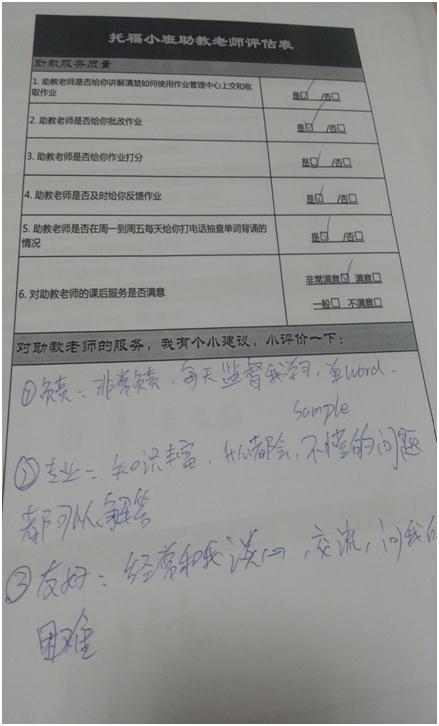 托福小班助教老师评估表
助教服务质量
1. 助教老师是否给你讲解清楚如何使用作业管理中心上交和收
取作业
是☑ /否☐
2. 助教老师是否给你批改作业
是☑ /否☐
3. 助教老师是否给你作业打分
是☑ /否☐
4. 助教老师是否及时给你反馈作业
是☑ /否☐
5. 助教老师是否在周一到周五每天给你打电话抽查单词背诵的
情况
是☑ /否☐
6. 对助教老师的课后服务是否满意
非常满意☑ 满意☐
一般☐ 不满意☐
对助教老师的服务，我有个小建议，小评价一下：
①负责：非常负责，每天监督我学习，单word.
sample
②专业：知识丰富，什么都会，不懂的问题
都可以解答
③友好：经常和我谈心，交流，问我的
困难